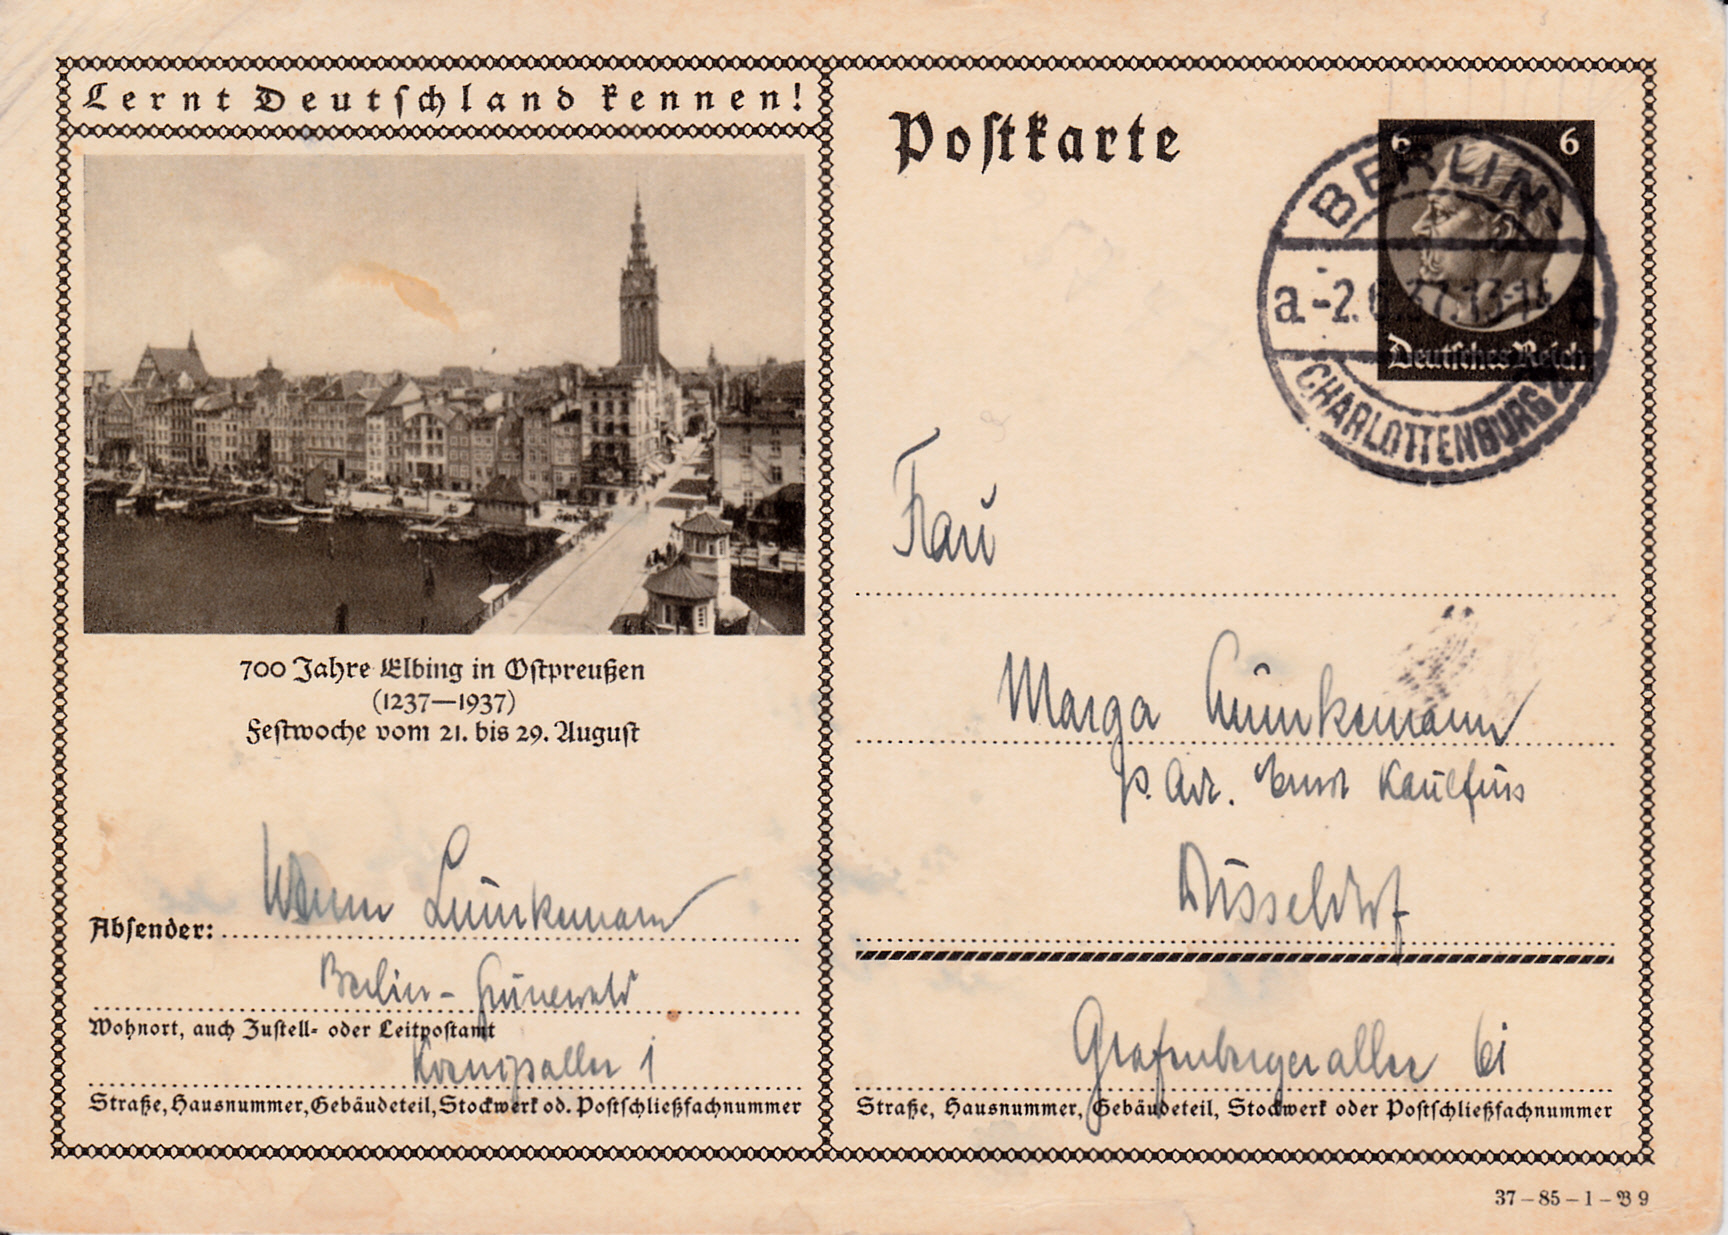 Lernt Deutschland kennen!
700 Jahre Elbing in Ostpreußen
(1237—1937)
Festwoche vom 21. bis 29. August
Absender:
Berlin-Grunewald
Wohnort, auch Zustell- oder Leitpostamt
Koenigsallee 1
Straße, Hausnummer, Gebäudeteil, Stockwerk od. Postschließfachnummer
Postkarte
6 6
Deutsches Reich
BERLIN-
a. -2. 37.13-
CHARLOTTENBURG 2
Frau
Marga
p. Adr. Ernst Kaulfuss
Düsseldorf
Grafenbergerallee
Straße, Hausnummer, Gebäudeteil, Stockwerk oder Postschließfachnummer
37 – 85 – 1 – B 9